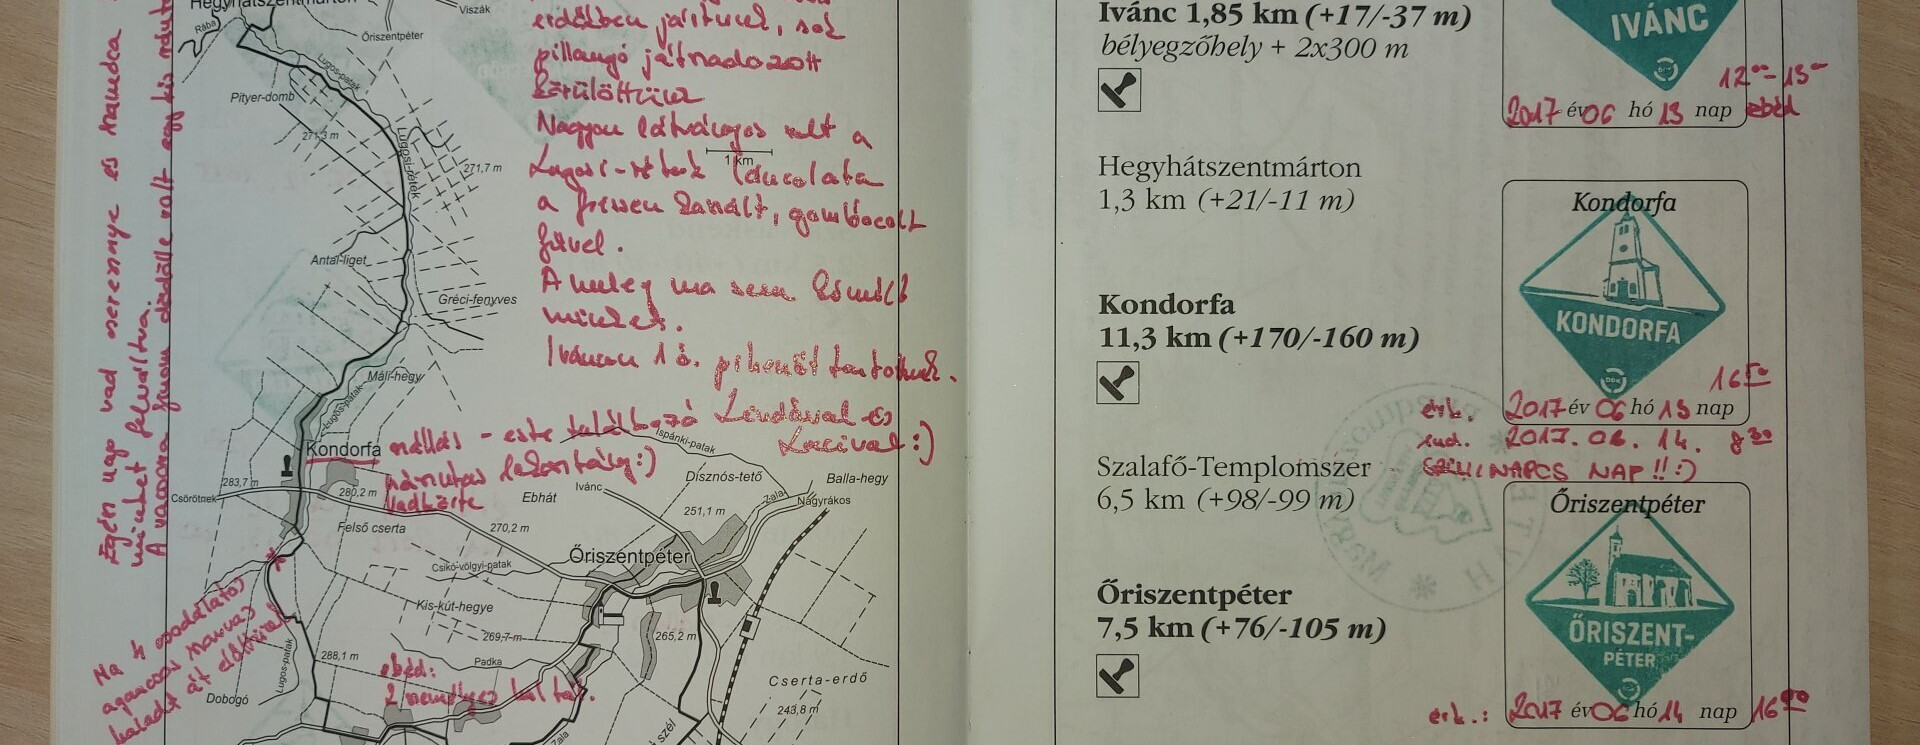 Hegyhátszentmárton
Viszák
Rába
Őriszentpéter
Lugos-patak
Pityer-domb
271,3 m
Lugosi-rétek
271,7 m
1 km
Antal-liget
Gréci-fenyves
Máli-hegy
Lugos-patak
Kondorfa
Ispánki-patak
283,7 m
Csörötnek
280,2 m
Ebhát
Ivánc
Disznós-tető
Balla-hegy
Zala
Nagyrákos
251,1 m
Felső cserta
270,2 m
Őriszentpéter
Csikó-völgyi-patak
Kis-kút-hegye
269,7 m
265,2 m
Padka
288,1 m
Lugos-patak
Dobogó
Cserta-erdő
243,8 m
Zala
szél
erdőben jártunk, sok
pillangó játszadozott
körülöttünk
Nagyon látványos volt a
Lugosi-rétek láncolata
a frissen kaszált, gombócolt
fűvel.
A meleg ma sem kímélt
minket.
Iváncon 1 ó. pihenőt tartottunk.
szállás - este találkozó Lindával és Lacival :)
Vadkörte
Egén nap vad cseresznye és szamóca
minket felváltva.
Ma 4 csodálatos
agancsos szarvas
haladt át előttünk
ebéd:
Ivánc 1,85 km (+17/-37 m)
bélyegzőhely + 2x300 m
IVÁNC
DDK
12⁰⁰-13⁰⁰
2017 év 06 hó 13 nap ebéd
Hegyhátszentmárton
1,3 km (+21/-11 m)
Kondorfa
KONDORFA
DDK
Kondorfa
11,3 km (+170/-160 m)
16⁵⁰
érk. 2017 év 06 hó 13 nap
ind. 2017. 06. 14. 8³⁰
SZÜLINAPOS NAP!! :)
Szalafő-Templomszer
6,5 km (+98/-99 m)
Őriszentpéter
ŐRISZENT-
PÉTER
Őriszentpéter
7,5 km (+76/-105 m)
érk.: 2017 év 06 hó 14 nap 16⁰⁰